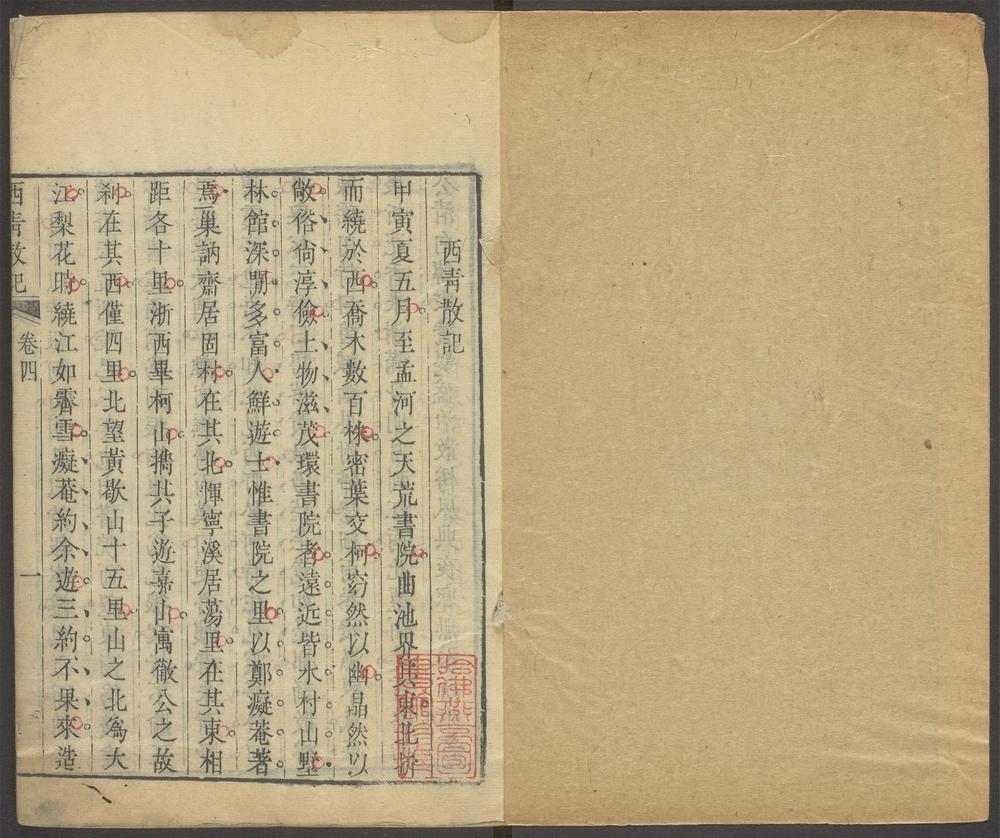 西靑散記
甲寅夏五月至孟河之天荒書院曲池界其東北
而繞於西喬木數百株密葉交柯窈然以幽晶然以
敞俗尙淳儉土物滋茂環書院者遠近皆水村山墅
林館深閒多富人鮮遊士惟書院之里以鄭癡菴著
焉巢訥齋居固村在其北惲寧溪居蕩里在其東相
距各十里浙西畢柯山擕其子遊嘉山寓徹公之故
刹在其西僅四里北望黃歇山十五里山之北爲大
江梨花時繞江如霽雪癡菴約余遊三約不果來造
西靑散記
卷四
一
哈佛燕京